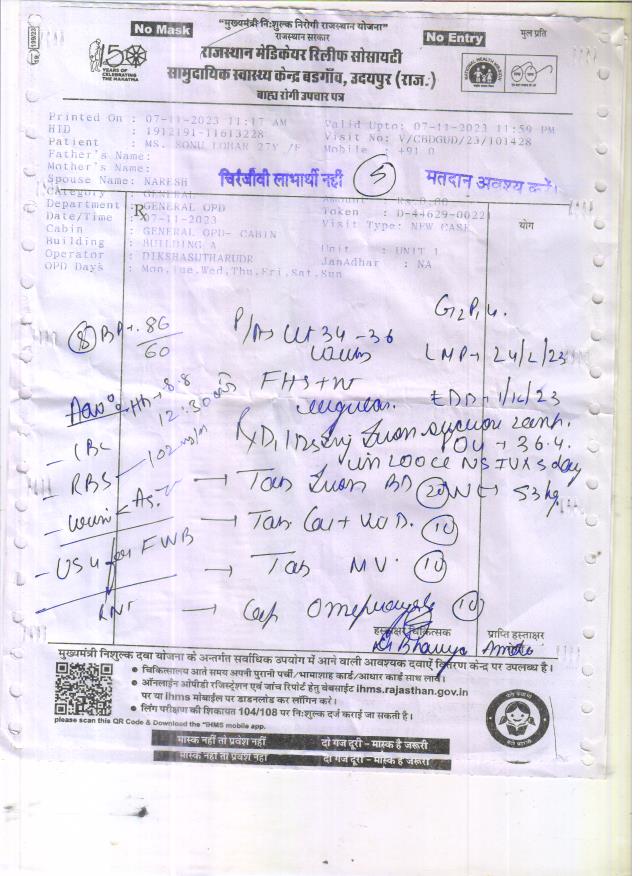 No Mask
"मुख्यमंत्री निःशुल्क निरोगी राजस्थान योजना"
राजस्थान सरकार
No Entry
मुल प्रति
राजस्थान मेडिकेयर रिलीफ सोसायटी
सामुदायिक स्वास्थ्य केन्द्र बडगाँव, उदयपुर (राज.)
बाह्य रोगी उपचार पत्र
YEARS OF CELEBRATING THE MAHATMA
Printed On : 07-11-2023 11:17 AM Valid Upto: 07-11-2023 11:59 PM
HID : 1912191-11613228 Visit No: V/CBDGUD/23/101428
Patient : MS. SONU LOHAR 27Y /F Mobile : +91 0
Father's Name:
Mother's Name:
Spouse Name: NARESH
चिरंजीवी लाभार्थी नहीं 5 मतदान अवश्य करें।
Category : GENERAL Amount : Rs.0.00
Department : GENERAL OPD Token : D-44629-00221
Date/Time : 07-11-2023 Visit Type: NEW CASE
योग
Rx
Cabin : GENERAL OPD- CABIN
Building : BUILDING A Unit : UNIT 1
Operator : DIKSHASUTHARUDR JanAdhar : NA
OPD Days : Mon,Tue,Wed,Thu,Fri,Sat,Sun
8 BP 86/60
P/A Ut 34-36 weeks
LMP 24/2/23
FHS + regular
EDD 1/12/23
Hb 8.8
12:30
CBC
RBS 102 mg/dl
in 200cc NS IV
Tab Iron BD 20
Wt 53 kg
Urine
Tab Cal + Vit D. 10
USG for FWB
Tab MV 10
RNT
Cap Omeprazole 10
हस्ताक्षर चिकित्सक प्राप्ति हस्ताक्षर
मुख्यमंत्री निशुल्क दवा योजना के अन्तर्गत सर्वाधिक उपयोग में आने वाली आवश्यक दवाऐं वितरण केन्द्र पर उपलब्ध है।
• चिकित्सालय आते समय अपनी पुरानी पर्ची/भामाशाह कार्ड/आधार कार्ड साथ लावें।
• ऑनलाईन ओपीडी रजिस्ट्रेशन एवं जांच रिपोर्ट हेतु बेबसाईट ihms.rajasthan.gov.in
पर या ihms मोबाईल पर डाउनलोड कर लॉगिन करें।
• लिंग परीक्षण की शिकायत 104/108 पर निःशुल्क दर्ज कराई जा सकती है।
please scan this QR Code & Download the "IHMS mobile app.
मास्क नहीं तो प्रवेश नहीं दो गज दूरी - मास्क है जरूरी
मास्क नहीं तो प्रवेश नहीं दो गज दूरी - मास्क है जरूरी